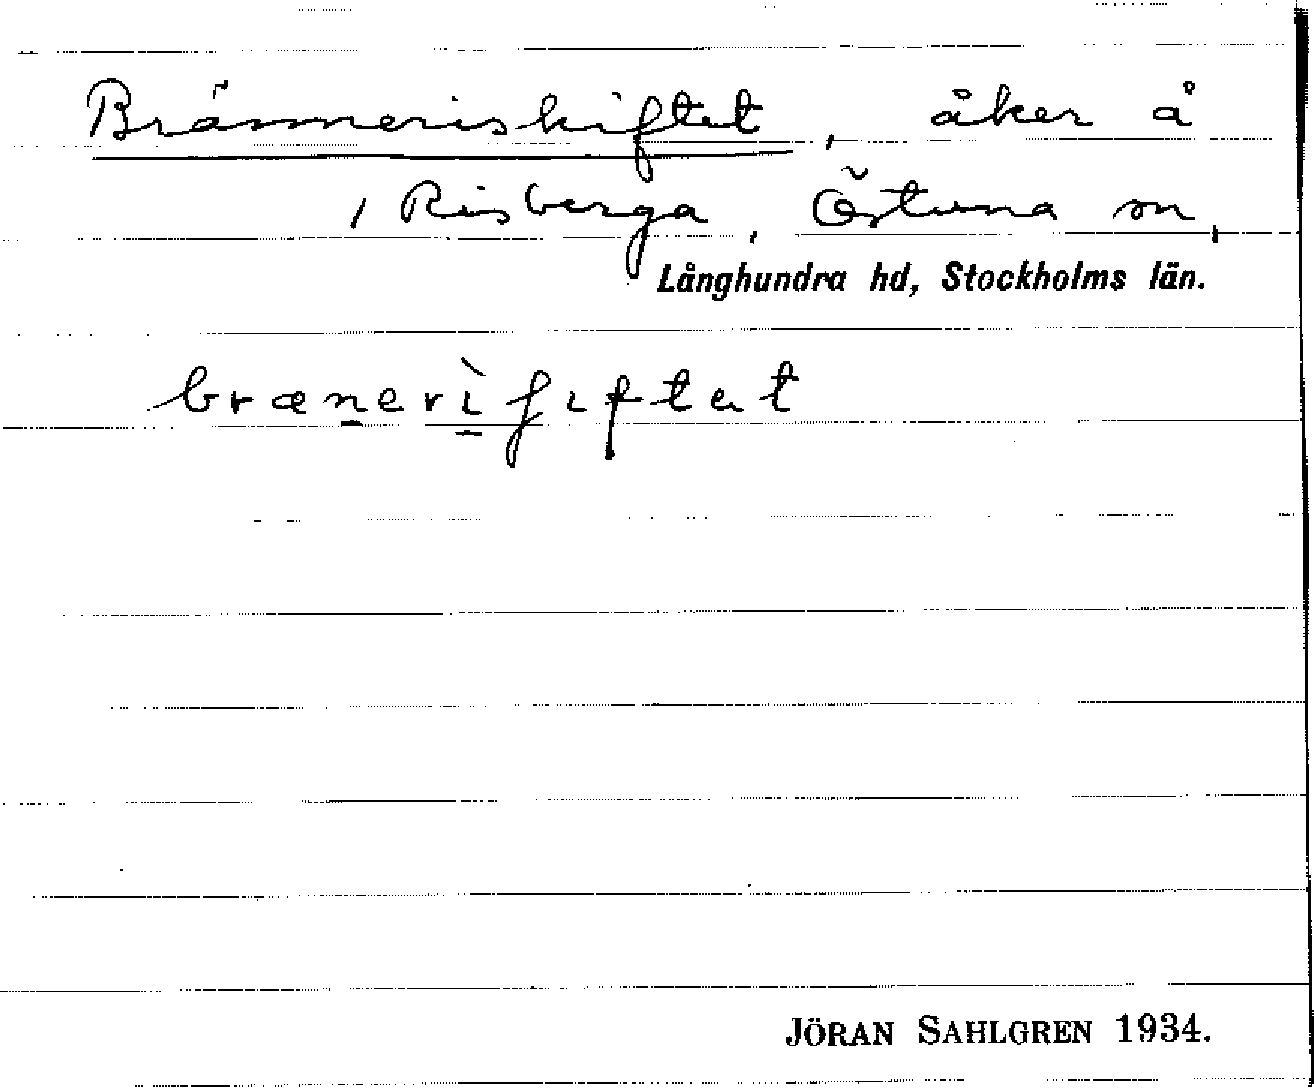 Bränneriskiftet, åker å
, Risberga, Östuna sn,
Långhundra hd, Stockholms län.
brænerìʃıftet
JÖRAN SAHLGREN 1934.